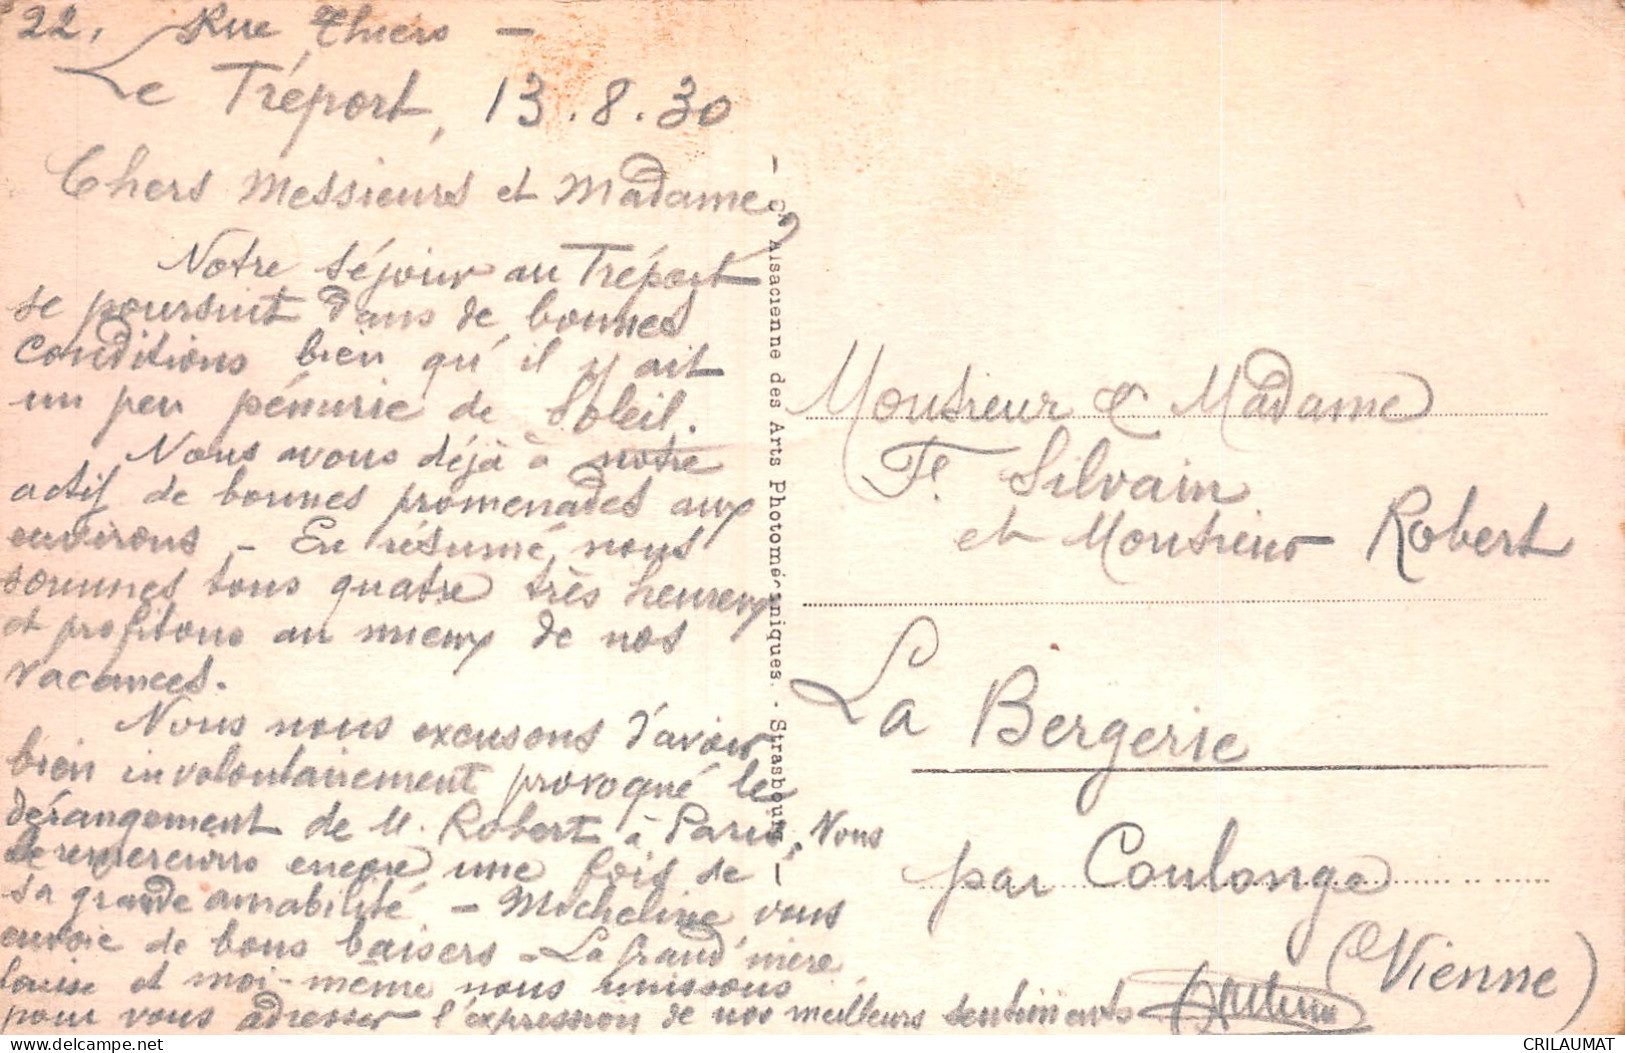 22, Rue Thiers —
Le Tréport, 13.8.30
Chers Messieurs et Madame,
Notre séjour au Tréport
se poursuit dans de bonnes
conditions bien qu'il y ait
un peu pénurie de Soleil.
Nous avons déjà à notre
actif de bonnes promenades aux
environs - En résumé, nous
sommes tous quatre très heureux
et profitons au mieux de nos
vacances.
Nous nous excusons d'avoir
bien involontairement provoqué le
dérangement de M. Robert à Paris. Nous
le remercions encore une fois de
sa grande amabilité - Micheline vous
envoie de bons baisers - La grand'mère
Louise et moi-même nous unissons
pour vous adresser l'expression de nos meilleurs sentiments
Cie Alsacienne des Arts Photomécaniques. - Strasbourg
Monsieur & Madame
F. Silvain
et Monsieur Robert
La Bergerie
par Coulonge
(Vienne)
CRILAUMAT